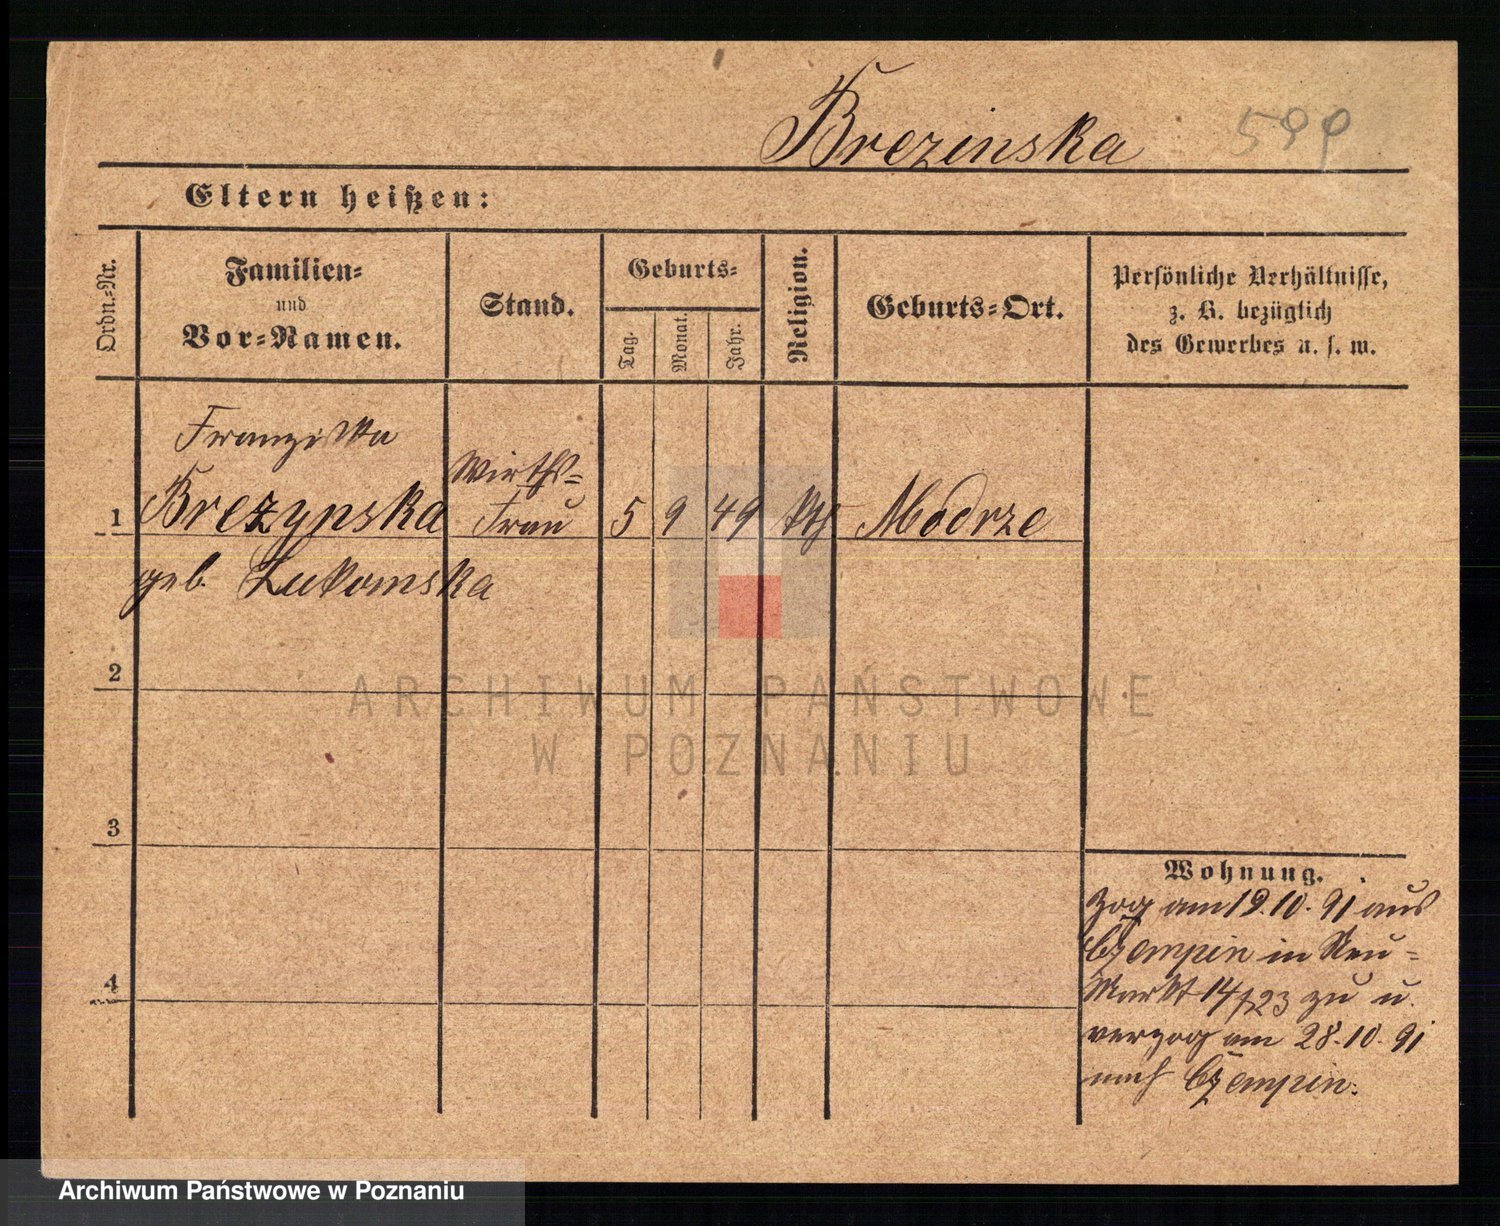 Brezinska 599
Eltern heißen:
Ordn.-Nr.
Familien-
und
Vor-Namen.
Stand.
Geburts-
Tag.
Monat.
Jahr.
Religion.
Geburts-Ort.
Persönliche Verhältnisse,
z. B. bezüglich
des Gewerbes u. s. w.
Franziska
Wirths-
1 Brezynska Frau 5 9 49 kth Modrze
geb. Lukomska
2
ARCHIWUM PAŃSTWOWE
W POZNANIU
3
Wohnung.
Zog am 19.10.91 aus
Czempin in Neu-
4
Markt 14/23 zu u.
verzog am 28.10.91
nach Czempin.
Archiwum Państwowe w Poznaniu